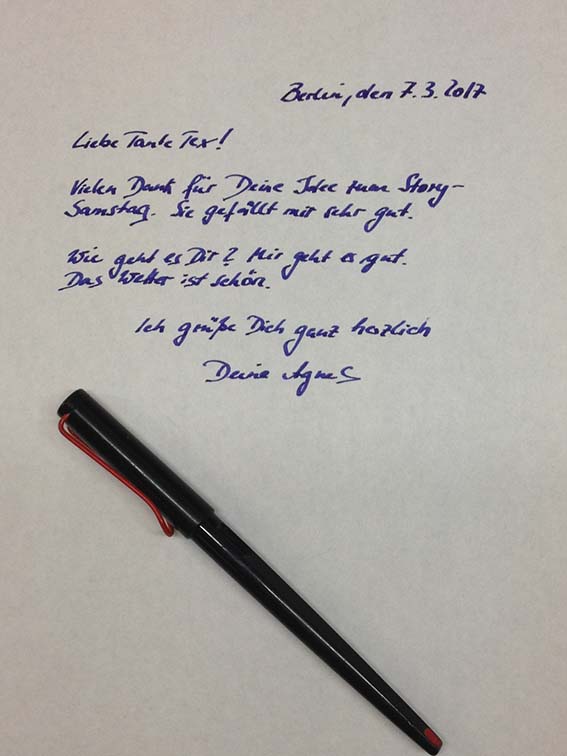 Berlin, den 7.3.2017
Liebe Tante Tex!
Vielen Dank für Deine Idee zum Story-
Samstag. Sie gefällt mir sehr gut.
Wie geht es Dir? Mir geht es gut.
Das Wetter ist schön.
Ich grüße Dich ganz herzlich
Deine Agnes